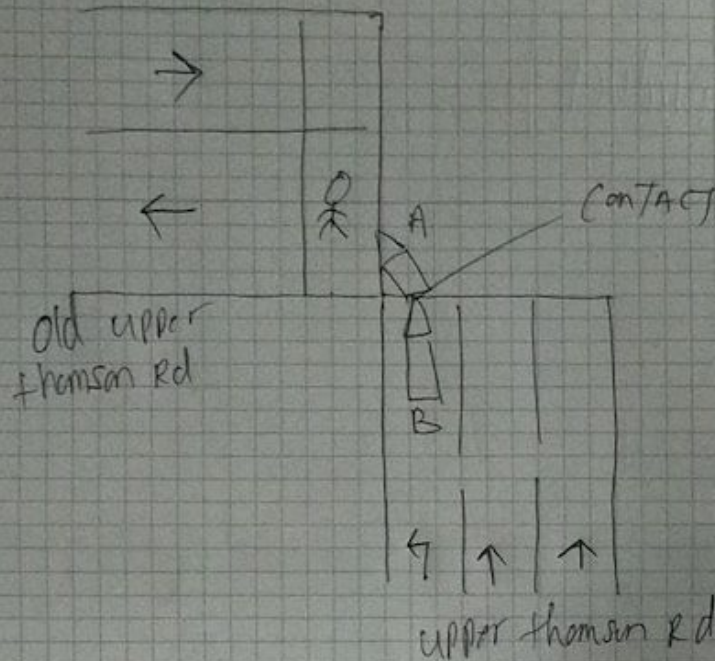 A
CONTACT
old upper
thomson Rd
B
upper thomson Rd